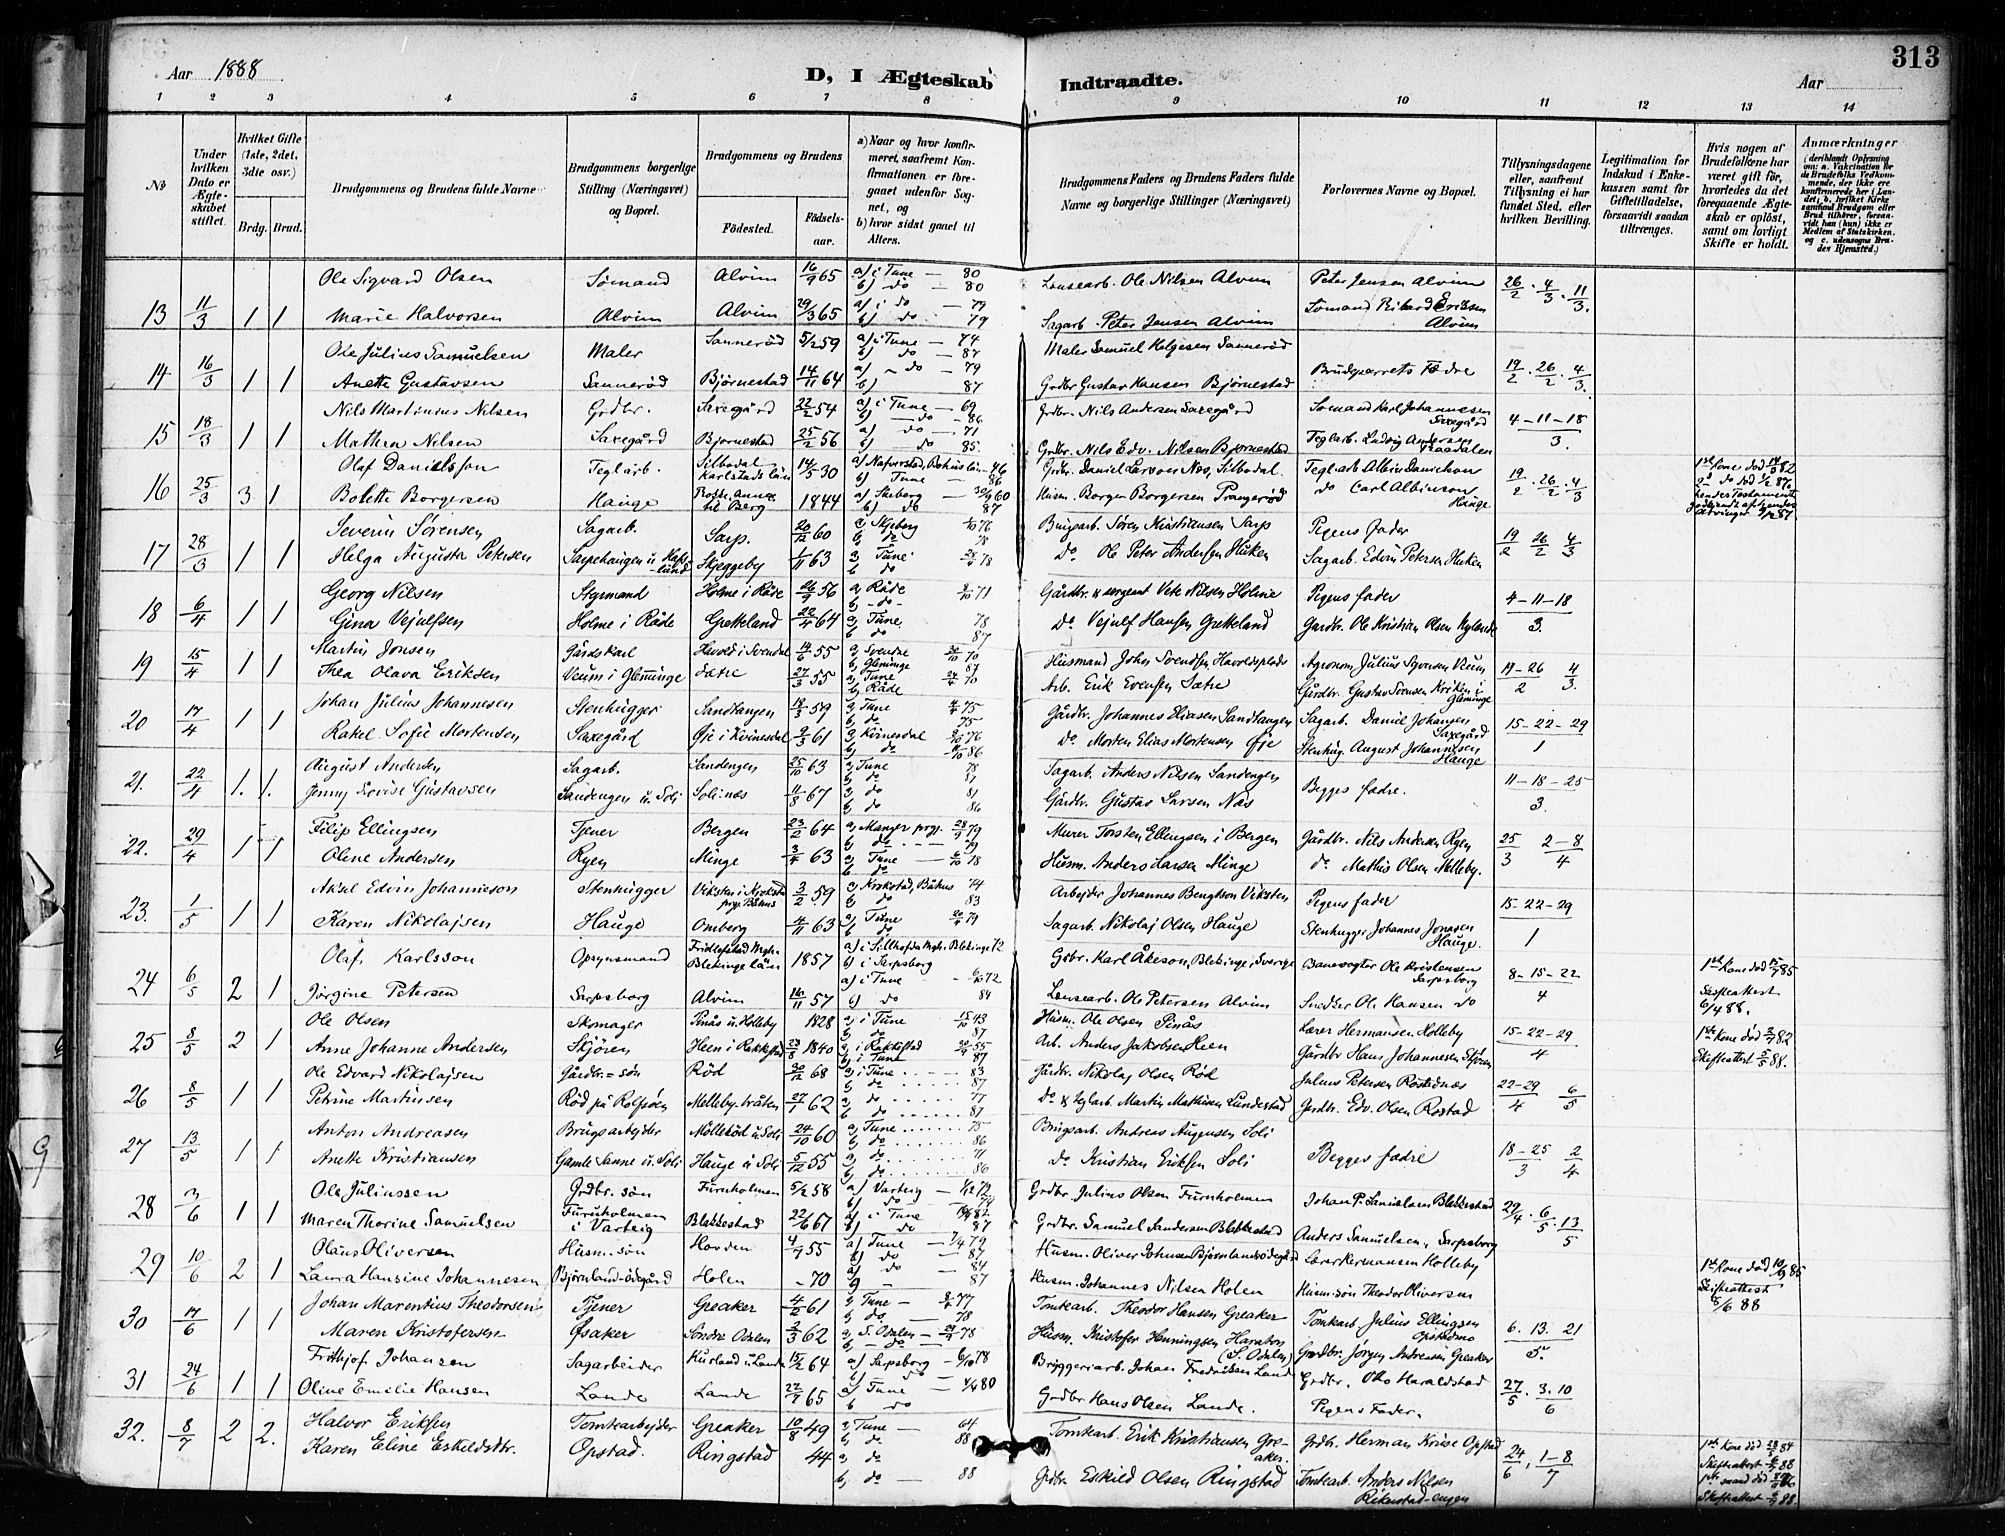 313
Aar 1888
D, I Ægteskab Indtraadte.
Aar
1 2 3 4 5 6 7 8 9 10 11 12 13 14
No
Under hvilken Dato er Ægteskabet stiftet.
Hvilket Gifte (1ste, 2det, 3die osv.)
Brdg. Brud.
Brudgommens og Brudens fulde Navne
Brudgommens borgerlige Stilling (Næringsvei) og Bopæl.
Brudgommens og Brudens
Fødested.
Fødselsaar.
a) Naar og hvor konfirmeret, saafremt Konfirmationen er foregaaet udenfor Sognet, og
b) hvor sidst gaaet til Alters.
Brudgommens Faders og Brudens Faders fulde Navne og borgerlige Stillinger (Næringsvei)
Forlovernes Navne og Bopæl.
Tillysningsdagene eller, saafremt Tillysning ei har fundet Sted, efter hvilken Bevilling.
Legitimation for Indskud i Enkekassen samt for Giftetilladelse, forsaavidt saadan tiltrænges.
Hvis nogen af Brudefolkene har været gift før, hvorledes da det foregaaende Ægteskab er opløst, samt om lovligt Skifte er holdt.
Anmærkninger
(deriblandt Oplysning om: a. Vakcination for de Brudefolks Vedkommende, der ikke ere konfirmerede her i Landet; b. hvilket Kirkesamfund Brudgom eller Brud tilhører, forsaavidt han (hun) ikke er Medlem af Statskirken, og c. udensogns Brudes Hjemsted.)
13 11/3 1 1 Ole Sigvard Olsen Sømand Alvim 16/9 65 a) i Tune — 80 b) do — 80 Lensearb. Ole Nilsen Alvim Peter Jensen Alvim 26/2 . 4/3 . 11/3.
Marie Halvorsen Alvim Alvim 29/3 65 a) i do — 79 b) do 79 Sagarb. Peter Jensen Alvim Sømand Rikard Eriksen Alvim
14 16/3 1 1 Ole Julius Samuelsen Maler Sannerød 5/2 59 a) i Tune — 74 b) do — 87 Maler Samuel Helgesen Sannerød Brudeparrets Fædre 19/2 . 26/2 . 4/3.
Anette Gustavsen Sannerød Bjørnestad 14/11 64 a) do — 79 b) 87 Grdbr Gustav Hansen Bjørnestad
15 18/3 1 1 Nils Martinius Nilsen Grdbr. Saxegård 22/2 54 a) i Tune — 69 b) do — 86 Grdbr. Nils Andersen Saxegård Sømand Karl Johannesen Saxegård 4-11-18/3.
Mathea Nilsen Saxegård Bjørnestad 25/2 56 a) do — 71 b) do 85. Grdbr. Nils Edv. Nilsen Bjørnestad Teglarb. Ludvig Andersen
16 25/3 3 1 Olaf Danielsson Teglarb. Silbodal Karlstads län 14/5 30 a) Nafverstad, Bohuslän 46 b) Tune — 86 Grdbr. Daniel Larsson Nas, Silbodal Teglarb Albin Danielson 19/2 . 26/2 . 4/3
Bolette Borgersen Hauge til Berg 1844 a) Skeberg 60 b) do 87 Husm. Borger Borgersen Prangerød do Carl Albinson Hauge
17 28/3 1 1 Severin Sørensen Sagarb. Sarp. 20/12 60 a) Skjeberg 76 b) do 78 Brugsarb. Søren Kristiansen Sarp Pigens fader 19/2 26/2 4/3
Helga Augusta Petersen Sarpehaugen u. Hafslund Skjeggeby 1/11 63 a) Tune 78 b) do Do. Ole Peter Andersen Huken Sagarb. Edvin Petersen Huken
18 6/4 1 1 Georg Nilsen Styrmand Holme i Råde 26/9 56 a) Råde 71 b) do Gårdbr. & sergent Nilsen Holme Pigens fader 4-11-18/3.
Gina Vejulfsen Holme i Råde Gretteland 22/4 64 a) Tune 78 b) do 87 Do. Vejulf Hansen Gretteland Gardbr. Ole Kristian Olsen Nylende
19 15/4 1 1 Martin Jonsen Gårdskarl Havold i Svendal 14/6 55 a) Svendal 70 b) Glemminge 87 Husmand John Svendsen Havoldsplads Agronom Julius Syversen Veum 19-26/2 4/3.
Thea Olava Eriksen Veum i Glemminge Sætre 27/3 55 a) Tune 24/4 70 b) Råde Arb. Erik Evensen Sætre Gårdbr. Gustav Sørensen Glemminge
20 17/4 1 1 Johan Julius Johannesen Stenhugger Sandtangen 14/3 59 a) Tune 75 b) do 75 Gårdbr. Johannes Eliasen Sandtangen Sagarb. Daniel Johansen Saxegård 15-22-29/1
Rakel Sofie Mortensen Saxegård Øje i Kvinesdal 2/3 61 a) Kvinesdal 76 b) do 86 Do. Morten Elias Mortensen Øje Stenhug. August Johannesen Hauge
21. 22/4 1. 1. August Andersen Sagarb. Sandengen 25/10 63 a) Tune 78 b) do 87 Sagarb. Anders Nilsen Sandengen Begges fædre. 11-18-25/3.
Jenny Lovise Gustavsen Sandengen u. Soli Soli næs 11/8 67 a) do 81 b) do 86 Gårdbr. Gustav Larsen Næs
22. 29/4 1 1 Filip Ellingsen Tjener Bergen 23/2 64 a) Manger prgj. 28/9 79 b) do 79 Murer Torsten Ellingsen i Bergen Gårdbr. Nils Andersen Ryen 25/3 2-8/4
Oline Andersen Ryen Minge 3/4 63 a) Tune 6/10 78 b) do Husm. Anders Larsen Minge do Mathis Olsen Melleby.
23. 1/5 1 1 Aksel Edvin Johanneson Stenhugger Viksten i Bäfus 3/2 59 a) Krokstad, Båhus 74 b) do 83 Arbejder Johannes Bengtson Viksten Pigens fader 15-22-29/1
Karen Nikolajsen Hauge Omberg 4/11 63 a) Tune 79 b) do Sagarb. Nikolaj Olsen Hauge Stenhugger Johannes Jonasen Hauge.
24 6/5 2 1 Olaf Karlsson Opsynsmand Fridlefstad Blekinge län 1857 a) i Blekinge 72 b) i Sarpsborg Grbr. Karl Åkeson, Blekinge, Sverige Banevogter Ole Kristensen Sarpsborg 8-15-22/4 1st Kone død 85 Skifteattest 6/4 88.
Jørgine Petersen Sarpsborg Alvim 16/11 57 a) i Tune 72 b) do 84 Lensearb. Ole Petersen Alvim Snedker Ole Hansen do
25 8/5 2 1 Ole Olsen Skomager Pinås u. Holleby 1828 a) i Tune 43 b) do 87 Husm. Ole Olsen Pinås Lærer Hermansen Holleby 15-22-29/4 1ste Kone død 82
Anne Johanne Andersen Skjøren Heen i Rakkestad 23/8 1840 a) i Rakkestad 55 b) i Tune 87 Arb. Anders Jakobsen Heen Gårdbr Hans Johannesen Skjøren Skifteattest 88.
26 8/5 1 1 Ole Edvard Nikolajsen Gårdbr.=søn Rød 30/12 68 a) i Tune 83 b) do 87 Gårdbr. Nikolaj Olsen Rød Julius Petersen Rostadnæs 22-29/4 6/5
Petrine Martinsen Rød på Rolfsøen Melleby-tråten 27/1 62 a) do 77 b) do 87 Do & teglarb. Martin Mathisen Lundestad Gårdbr. Edv. Olsen Rostad
27 13/5 1 1 Anton Andreasen Brugsarbejder Møllerød u. Soli 24/10 60 a) Tune 75 b) do 86 Brugsarb. Andreas Augensen Soli Begges fædre 18-25/3 2/4
Anette Kristiansen Gamle Sanne u. Soli Hauge u. Soli 5/12 55 a) do 71 b) do 86 Do Kristian Eriksen Soli
28 3/6 1 1 Ole Juliussen Grdbr. søn Furuholmen 5/2 58 a) Varteig 72 b) do 74 Grdbr. Julius Olsen Furuholmen Johan P. Samuelsen Blakkestad 29/4 . 6/5 . 13/5
Maren Thorine Samuelsen Furuholmen i Varteig Blakkestad 22/6 67 a) i Tune 82 b) do 87 Grdbr. Samuel Sandersen Blakkestad Anders Samuelsen, Sarpsborg
29 10/6 2 1 Olaus Oliversen Husm. søn Hovden 4/9 55 a) Tune 79 b) do 87 Husm. Oliver Johnsen Bjørnlandsødegård Lærer Hermansen Holleby 1st Kone død 85
Laura Hansine Johannesen Bjørnland-ødgård Holen - 70 a) do 84 87 Husm. Johannes Nilsen Holen Husm. søn Theodor Oliversen Skifteattest 88
30 17/6 1 1 Johan Marentius Theodorsen Tjener Greaker 4/2 61 a) Tune 77 b) do 78 Tomtearb. Theodor Hansen Greaker Tomtearb. Julius Ellingsen Opstadmo 6. 13. 21/5.
Maren Kristofersen Øsaker Søndre Odalen 2/3 62 a) S. Odalen 78 b) do Husm. Kristofer Henningsen Haraton (S. Odalen) Grdbr. Jørgen Andreasen Greaker
31 24/6 1 1 Frithjof Johansen Sagarbeider Lande 15/2 64 a) Sarpsborg 6/10 78 b) Bryggeriarb. Johan Fredriksen Lande Grdbr. Otto Haraldstad 27/5 . 3 . 10/6
Oline Emilie Hansen Lande Lande 22/9 65 a) Tune 80 b) do Grdbr Hans Olsen Lande. Pigens Fader.
32. 8/7 2 2. Halvor Eriksen Tomtearbejder Greaker 10/8 49 a) Tune 64 b) do 88 Tomtearb. Erik Kristiansen Greaker. Grdbr. Herman Kruse Opstad 24/6, 1-8/7 1st Kone død 84 Skifteattest 88
Karen Eline Eskildsdtr. Opstad. Ringstad 44 a) do b) do — 88 Grdbr. Eskild Olsen Ringstad Tomtearb. Anders Nilsen mand død Skifteattest 88.